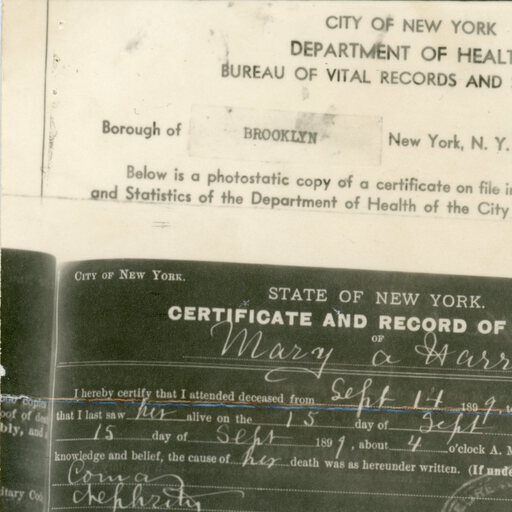 CITY OF NEW YORK
DEPARTMENT OF HEALT
BUREAU OF VITAL RECORDS AND
Borough of BROOKLYN New York, N. Y.
Below is a photostatic copy of a certificate on file i
and Statistics of the Department of Health of the City
CITY OF NEW YORK.
STATE OF NEW YORK.
CERTIFICATE AND RECORD OF
OF
Mary a Harr
I hereby certify that I attended deceased from Sept 14 1899, t
that I last saw her alive on the 15 day of Sept
15 day of Sept 1899, about 4 o'clock A. M
knowledge and belief, the cause of her death was as hereunder written. (If unde
Coma
Nephritis
oof of de
bly, and
itary Co